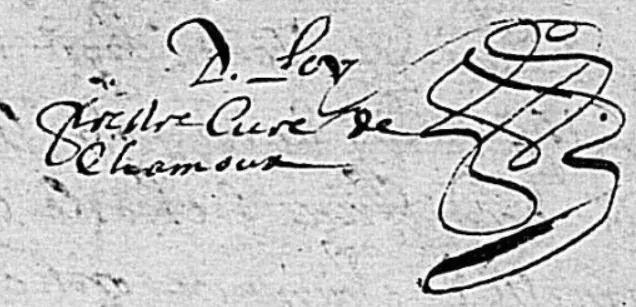 D. Loy
prestre Curé de
Chamoux